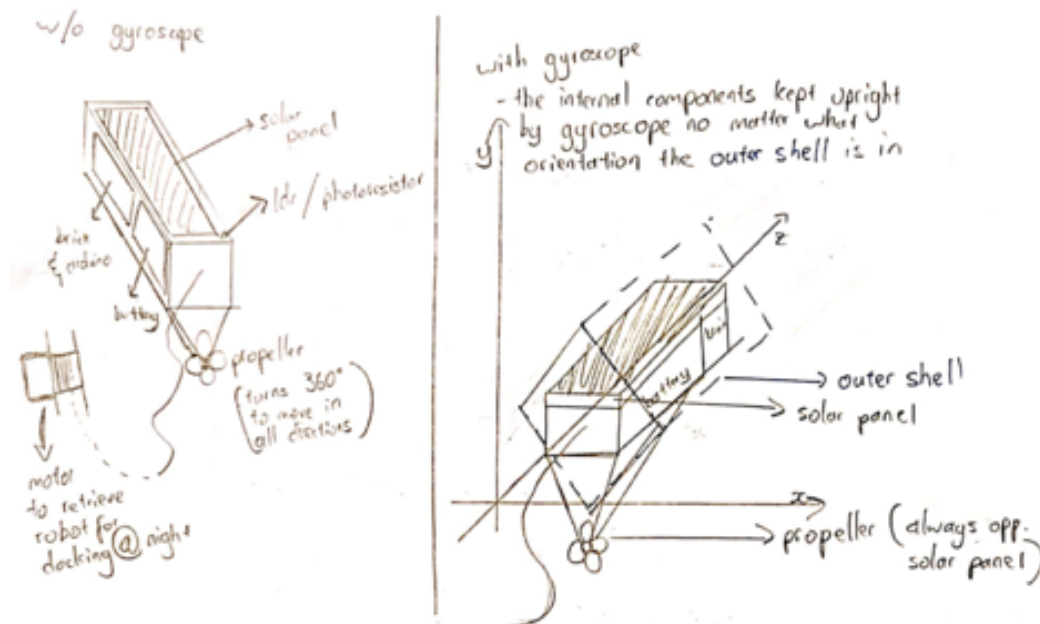 w/o gyroscope
solar
panel
ldr / photoresistor
brick
&
battery
propeller
(turns 360°
to move in
all directions)
motor
to retrieve
robot for
docking @ night
with gyroscope
- the internal components kept upright
by gyroscope no matter what
orientation the outer shell is in
y
z
battery
outer shell
solar panel
x
propeller (always opp.
solar panel)